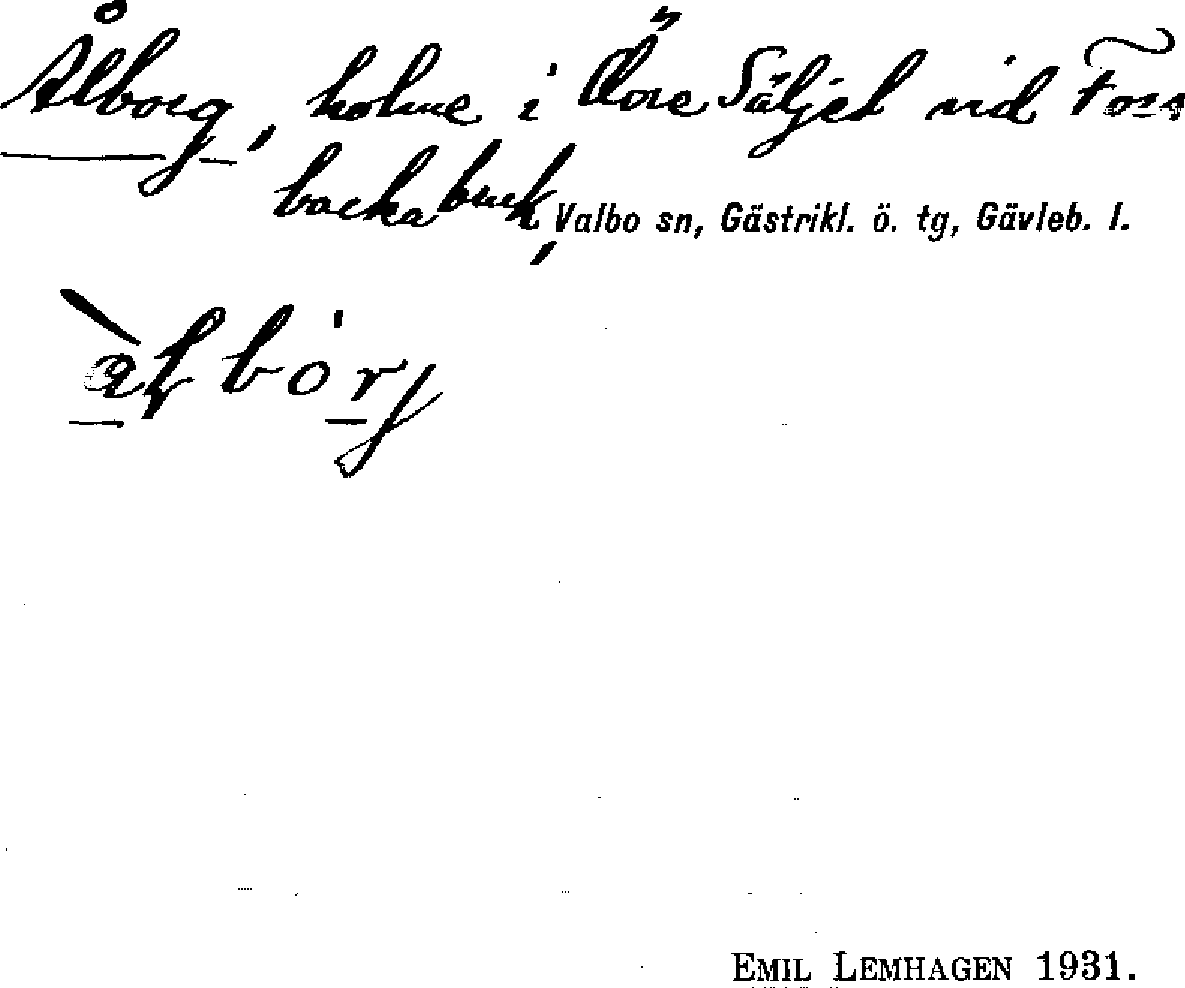 Ålborg, holme i Öore Säljet vid Foss
backa bruk, Valbo sn, Gästrikl. ö. tg, Gävleb. l.
àɫbórj
EMIL LEMHAGEN 1931.